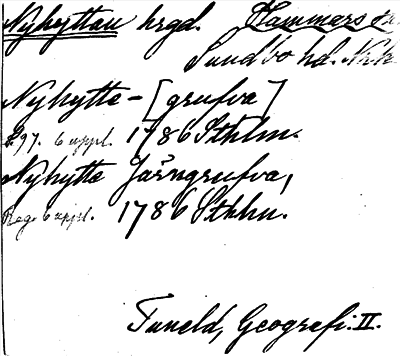 Nyhyttan hrgd. Hammars
Sundbo hd.
Nyhytte-[grufva]
297. 6 uppl. 1786 Sthlm.
Nyhytte Järngrufva,
Reg. 6 uppl. 1786 Sthlm.
Tuneld, Geografi. II.